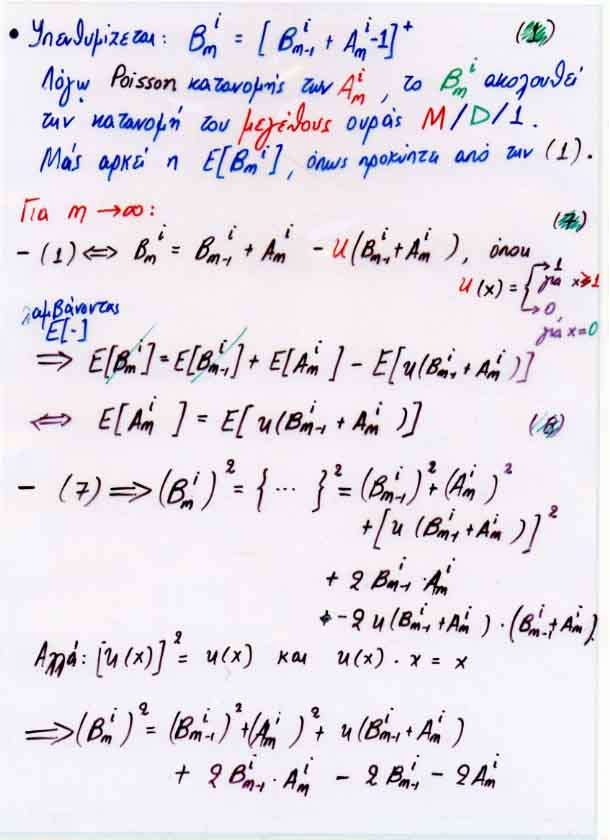 • Υπενθυμίζεται: B_m^i = [B_{m-1}^i + A_m^i - 1]^+ (1)
Λόγω Poisson κατανομής των A_m^i, το B_m^i ακολουθεί
την κατανομή του μεγέθους ουράς M/D/1.
Μάς αρκεί η E[B_m^i], όπως προκύπτει από την (1).
Για m → ∞: (7)
- (1) ⇔ B_m^i = B_{m-1}^i + A_m^i - u(B_{m-1}^i + A_m^i), όπου
u(x) = { → 1, για x ≥ 1
→ 0, για x = 0
λαμβάνοντας
E[-]
⇒ E[B_m^i] = E[B_{m-1}^i] + E[A_m^i] - E[u(B_{m-1}^i + A_m^i)]
⇔ E[A_m^i] = E[u(B_{m-1}^i + A_m^i)] (8)
- (7) ⇒ (B_m^i)^2 = {...}^2 = (B_{m-1}^i)^2 + (A_m^i)^2
+ [u(B_{m-1}^i + A_m^i)]^2
+ 2 B_{m-1}^i · A_m^i
- 2 u(B_{m-1}^i + A_m^i) · (B_{m-1}^i + A_m^i).
Αλλά: [u(x)]^2 = u(x) και u(x) · x = x
⇒ (B_m^i)^2 = (B_{m-1}^i)^2 + (A_m^i)^2 + u(B_{m-1}^i + A_m^i)
+ 2 B_{m-1}^i · A_m^i - 2 B_{m-1}^i - 2 A_m^i